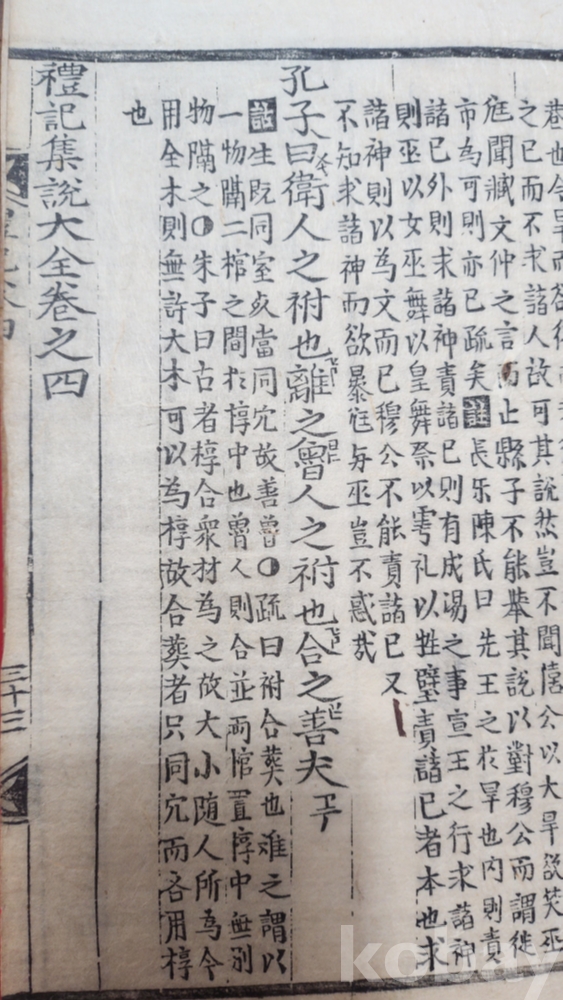 巷也今旱而欲徙
之已而不求諸人故可其說然豈不聞僖公以大旱欲焚巫
尫聞臧文仲之言而止縣子不能擧其說以對穆公而謂徙
市為可則亦已疏矣 註 長乐陳氏曰先王之於旱也內則責
諸已外則求諸神責諸已則有成湯之事宣王之行求諸神
則巫以女巫舞以皇舞祭以雩礼以牲璧責諸已者本也求
諸神則以為文而已穆公不能責諸已又
不知求諸神而欲暴尫与巫豈不惑哉
孔子曰衛人之祔也離之魯人之祔也合之善夫
註 生既同室死當同穴故善魯○疏曰祔合葬也难之謂以
一物隔二棺之間於椁中也魯人則合並两棺置椁中無別
物隔之○朱子曰古者椁合衆材為之故大小随人所為今
用全木則無許大木可以為椁故合葬者只同穴而各用椁
也
禮記集說大全卷之四
三十三
korbay